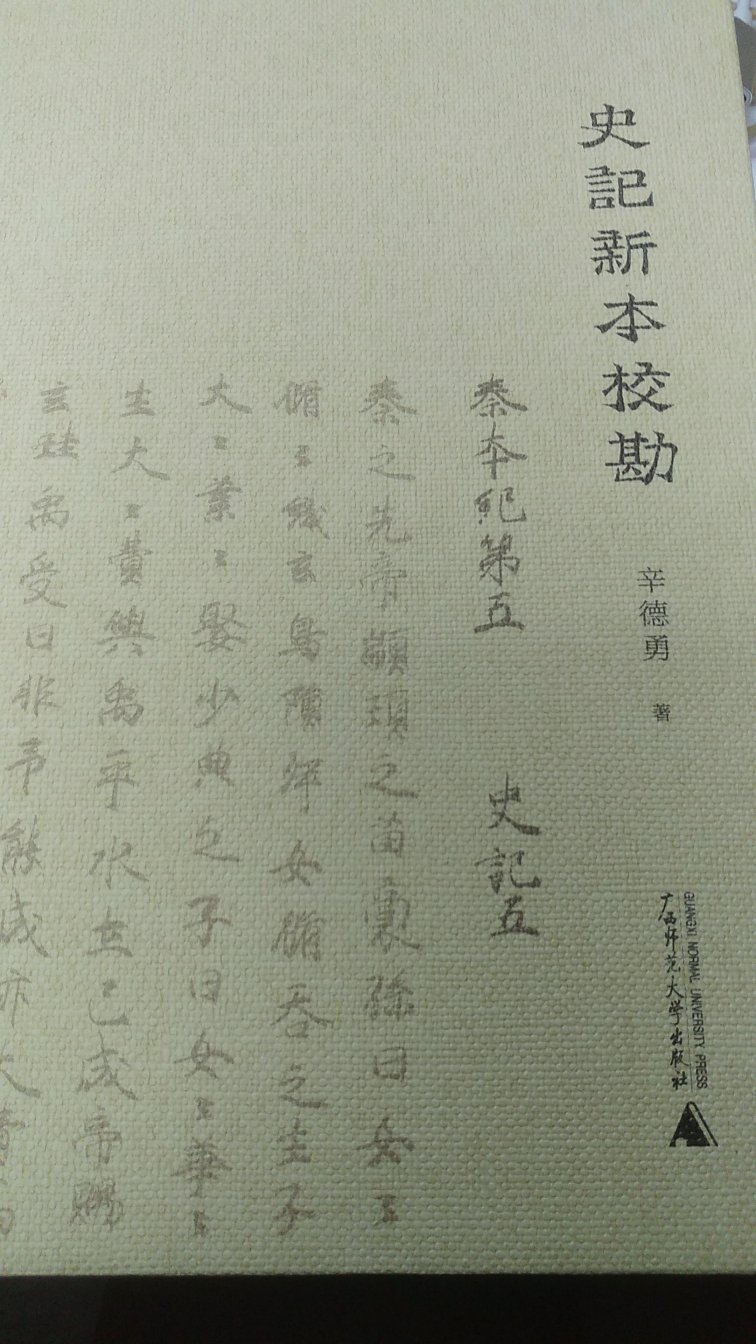 史記新本校勘
辛德勇 著
GUANGXI NORMAL UNIVERSITY PRESS
广西师范大学出版社
秦本紀第五 史記五
秦之先帝顓頊之苗裔孫曰女〻
脩〻織玄鳥隕卵女脩吞之生子
大〻業〻娶少典之子曰女〻華〻
生大〻費與禹平水土已成帝賜
玄珪禹受曰非予能成亦大費為